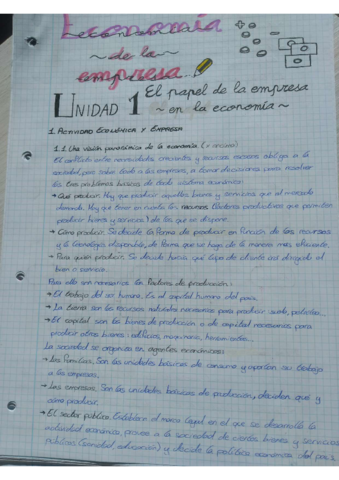 Economía
~ de la ~
empresa
UNIDAD 1 El papel de la empresa
~ en la economía ~
1. ACTIVIDAD ECONÓMICA Y EMPRESA
1.1. Una visión panorámica de la economía.
El conflicto entre necesidades crecientes y recursos escasos obliga a la
sociedad, para sobre todo a las empresas, a tomar decisiones para resolver
los tres problemas básicos de todo sistema económico:
→ Qué producir. Hay que producir aquellos bienes y servicios que el mercado
demanda. Hay que tener en cuenta los recursos (factores productivos que permiten
producir bienes y servicios) de los que se dispone.
→ Cómo producir. Se decide la forma de producir en función de los recursos
y la tecnología disponible, de forma que se haga de la manera más eficiente.
→ Para quién producir. Se decide hacia qué tipo de cliente irá dirigido el
bien o servicio.
Para ello son necesarios los factores de producción:
→ El trabajo del ser humano. Es el capital humano del país.
→ La tierra son los recursos naturales necesarios para producir: suelo, petróleo...
→ El capital son los bienes de producción o de capital necesarios para
producir otros bienes: edificios, maquinaria, herramientas...
La sociedad se organiza en agentes económicos:
→ Las familias. Son las unidades básicas de consumo y aportan su trabajo
a las empresas.
→ Las empresas. Son las unidades básicas de producción, deciden qué y
cómo producir.
→ El sector público. Establecen el marco legal en el que se desarrolla la
actividad económica, provee a la sociedad de ciertos bienes y servicios
públicos (sanidad, educación) y decide la política económica del país.